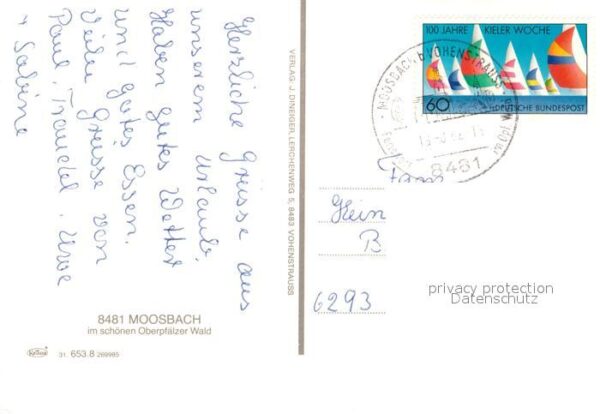 Herzliche Grüsse aus
unserem Urlaub.
Haben gutes Wetter
und gutes Essen.
Viele Grüsse von
Paul, Traudel, Uwe
+ Sabine
8481 MOOSBACH
im schönen Oberpfälzer Wald
31. 653.8 269985
VERLAG J. DINEIGER, LERCHENWEG 5, 8483 VOHENSTRAUSS
100 JAHRE KIELER WOCHE
60 DEUTSCHE BUNDESPOST
MOOSBACH b VOHENSTRAUSS
8481
Fam
Hein
B
6293
privacy protection
Datenschutz